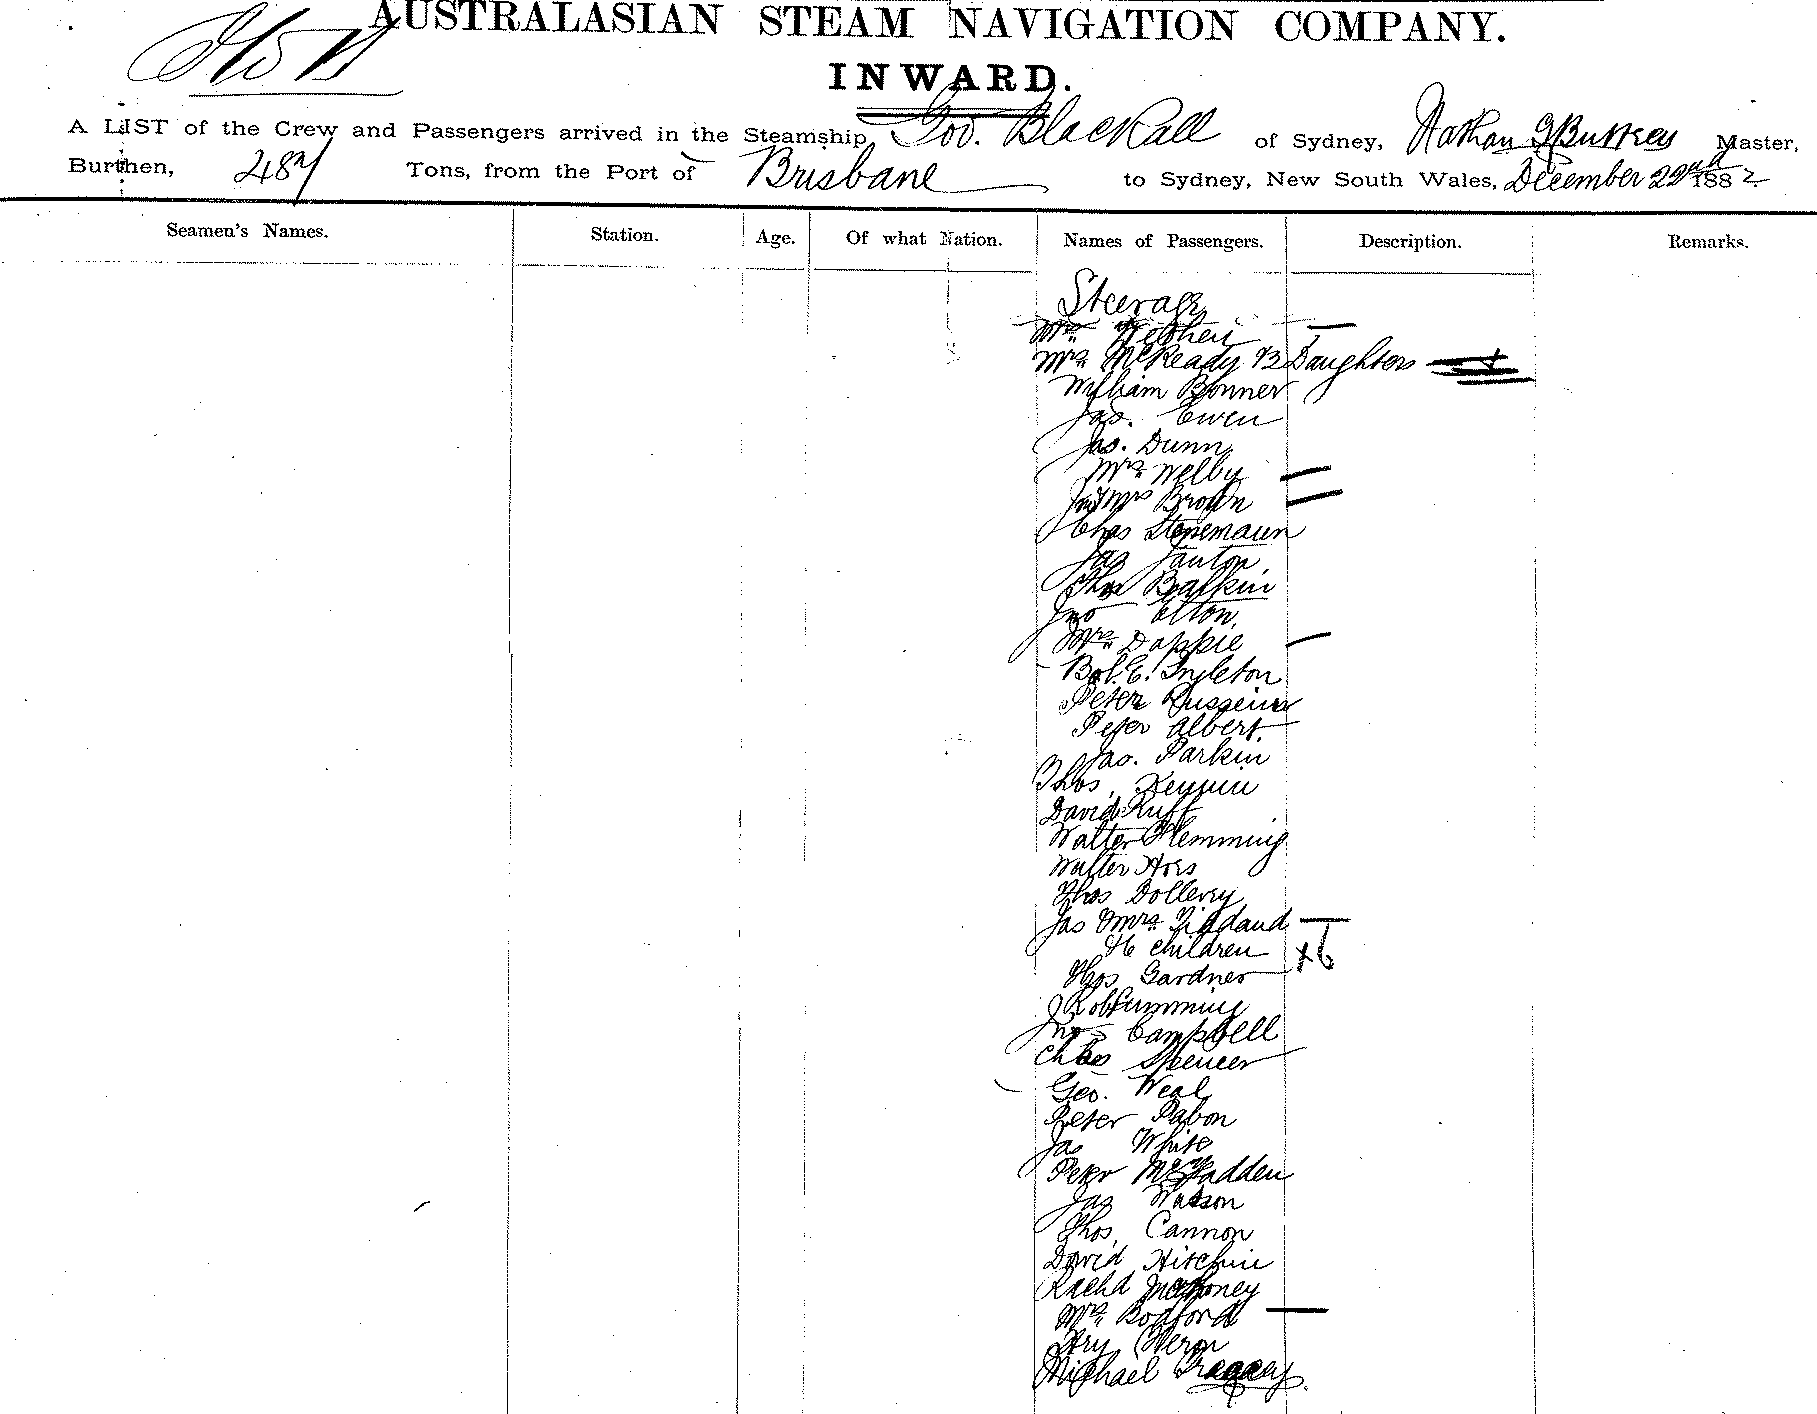 AUSTRALASIAN STEAM NAVIGATION COMPANY.
INWARD.
A LIST of the Crew and Passengers arrived in the Steamship Gov. Blackall of Sydney, Master,
Burthen, 487 Tons, from the Port of Brisbane to Sydney, New South Wales, December 22nd 1882
Seamen's Names. Station. Age. Of what Nation. Names of Passengers. Description. Remarks.
Steerage
Mrs
Mrs McReady & 3 Daughters
William Bonner
Jas. Ewen
Jas. Dunn
Mrs Welby
Mrs Brown
Chas Stenemann
Jas Janton
Thos
Jno Elton,
Mrs Dappie
E. Ingleton
Peter
Peter Albert
Jas. Parkin
Thos,
David Ruff
Walter Hemming
Walter
Thos Dollery
Jas & Mrs
children x6
Thos Gardner
Robt
Jno Campbell
Chas Spencer
Geo. Weal
Peter Pabon
Jas White
Peter McFadden
Jas Watson
Thos, Cannon
David Hitchin
Mahoney
Mrs Bodford
Hry Heron
Michael